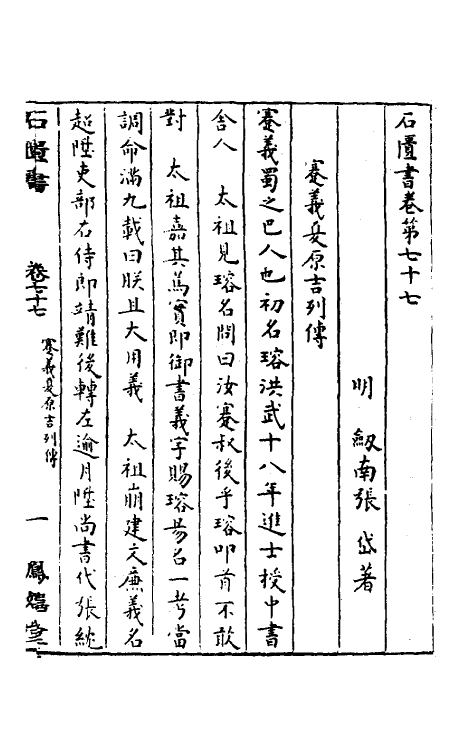 石匱書卷第七十七
明 劔南張岱著
蹇義夏原吉列傳
蹇義蜀之巴人也初名瑢洪武十八年進士授中書
舍人 太祖見瑢名問曰汝蹇叔後乎瑢叩首不敢
對 太祖嘉其篤實即御書義字賜瑢易名一考當
調命滿九載曰朕且大用義 太祖崩建文廉義名
超陞吏部右侍郎靖難後轉左逾月陞尚書代張紞
石匱書 卷七十七 蹇義夏原吉列傳 一 鳳嬉堂